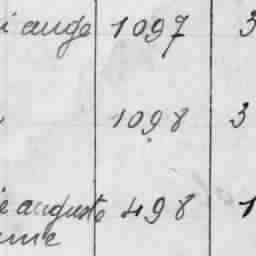 i ange 1097 3
1098 3
e auguste 498 1